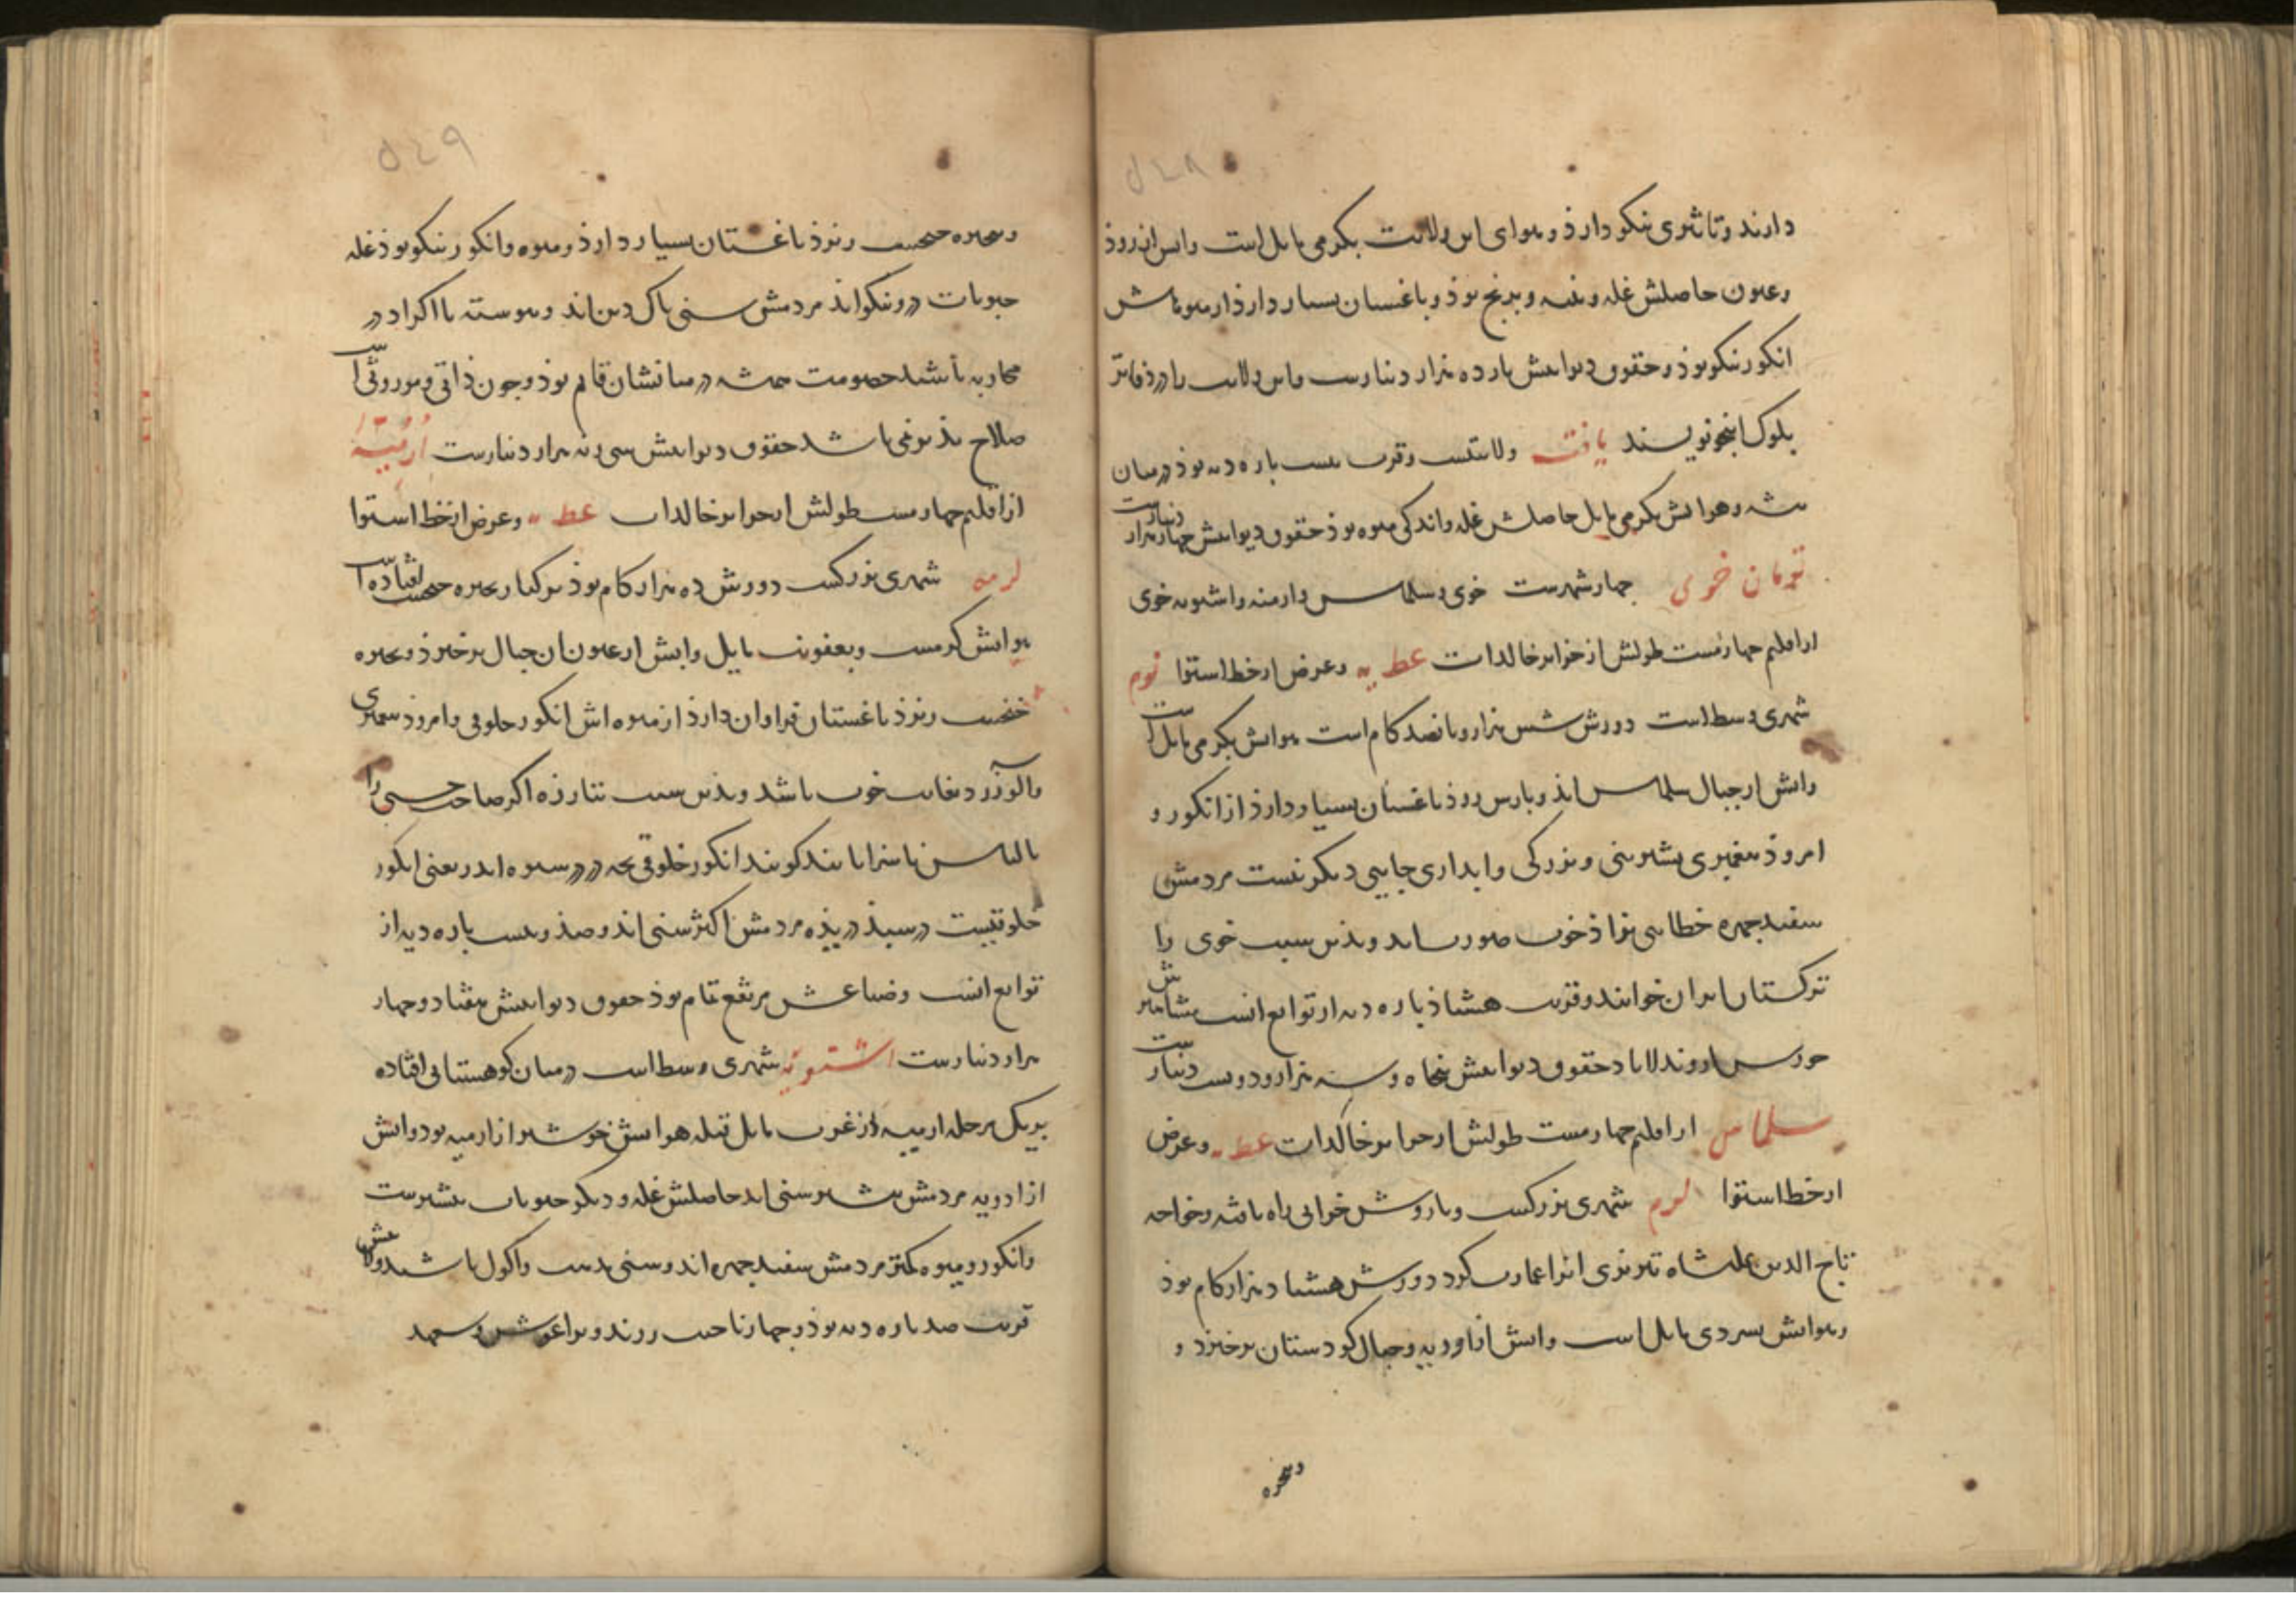 ۵۴۸
دارند و تاثیری نیکو دارذ و هوای این ولایت بکرمی مایل است و آبش از روذ
و عیون حاصلش غله و پنبه و برنج بوذ و باغستان بسیار دارذ از میوهاش
انکور نیکو بوذ و حقوق دیوانیش یازده هزار دینارست و این ولایت را در دفاتر
بلوک اینجو نویسند یافت ولایتیست و قرب بیست پاره دیه بوذ در میان
بیشه و هوایش بکرمی مایل حاصلش غله و اندکی میوه بوذ حقوق دیوانیش چهار هزار دینارست
تومان خوی چهار شهرست خوی و سلماس و ارمیه و اشنویه خوی
از اقلیم چهارمست طولش از جزایر خالدات عط یه و عرض از خط استوا
شهری وسط است دورش شش هزار و پانصد کام است هوایش بکرمی مایل است
و آبش از جبال سلماس آیذ و بارس روذ باغستان بسیار دارذ از انکور و
امروذ پیغمبری بشیرینی و بزرکی و آبداری جایی دیکر نیست مردمش
سفید چهره خطایی نژاذ خوب صورت‌اند و بذین سبب خوی را
ترکستان ایران خوانند و قرب هشتاذ پاره دیه از توابع آنست مشاهیرش
خورس و بدلاباد حقوق دیوانیش پنجاه و سه هزار و دویست دینارست
سلماس از اقلیم چهارمست طولش از جزایر خالدات عط یه و عرض
از خط استوا لوم شهری بزرکست و باروش خرابی راه یافته و خواجه
تاج الدین علیشاه تبریزی آنرا عمارت کرد دورش هشتاد هزار کام بوذ
و هوایش بسردی مایل است و آبش از اودیه و جبال کردستان برخیزد و
وبحیره
۵۴۹
و بحیره چیچست ریزذ باغستان بسیار دارذ و میوه و انکور نیکو بوذ غله
حبوبات درو نیکو آیذ مردمش سنی پاک دین‌اند و پیوسته با اکراد در
محاربه باشند خصومت همیشه در میانشان قایم بوذ و چون ذاتی و موروثی است
صلاح پذیر نمی‌باشد حقوق دیوانیش سی و نه هزار دینارست ارمیه
از اقلیم چهارمست طولش از جزایر خالدات عط یه و عرض از خط استوا
شهری بزرکست دورش ده هزار کام بوذ بر کنار بحیره چیچست افتاده است
هوایش کرمست و بعفونت مایل و آبش از عیون آن جبال برخیزذ و بحیره
چیچست ریزذ باغستان فراوان دارذ از میوه اش انکور خلوقی و امروذ پیغمبری
و آلو زرد بغایت خوب باشد و بذین سبب تبارزه اکر صاحب حسنی را
بالباس ناسزا یابند کویند انکور خلوقی بچه در در سبوه اندر یعنی انکور
خلوقیست در سبذ دریذه مردمش اکثر سنی‌اند و صذ و بیست پاره دیه از
توابع آنست و ضیاعش مرتفع تمام بوذ حقوق دیوانیش هفتاد و چهار
هزار دینارست اشنویه شهری وسط است در میان کوهستانی افتاده
بر یک مرحله ارمیه از غرب مایل قبله هوایش خوشتر از ارمیه بود و آبش
از اودیه مردمش بیشتر سنی‌اند حاصلش غله و دیکر حبوبات بیشترست
و انکور و میوه کمتر مردمش سفید چهره‌اند و سنی مذهب و اکول باشند
قریب صد پاره دیه بوذ و چهار ناحیت